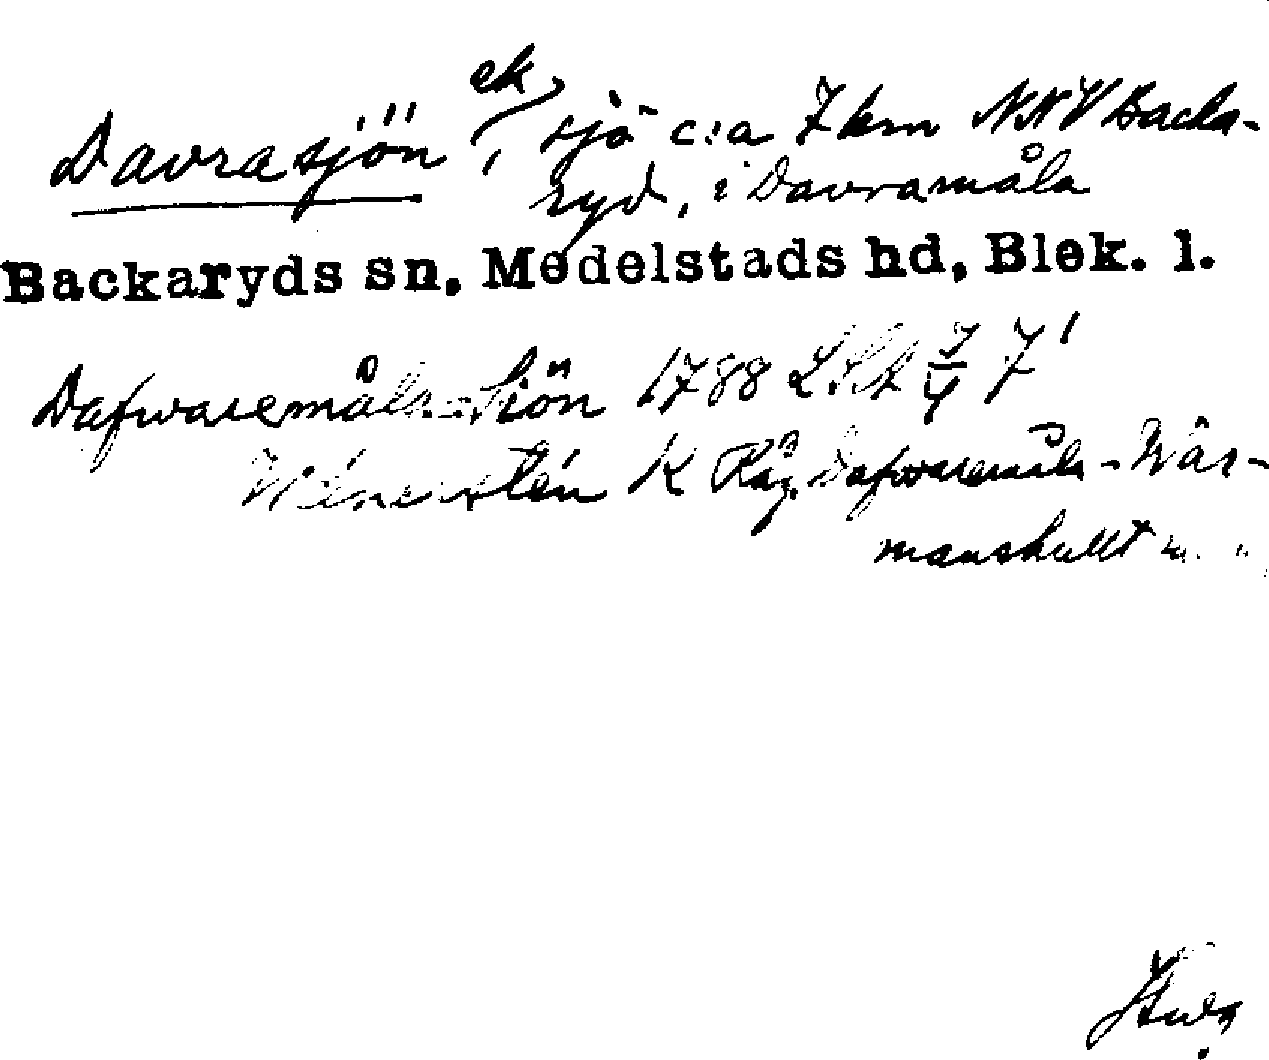 Davrasjön, ek, sjö c:a 7 km NNV Backa-
ryd, i Davramåla
Backaryds sn, Medelstads hd, Blek. l.
Dafwaremåla=Siön 1788 7
K Råg. Dafwaremåla-Wär-
manshult